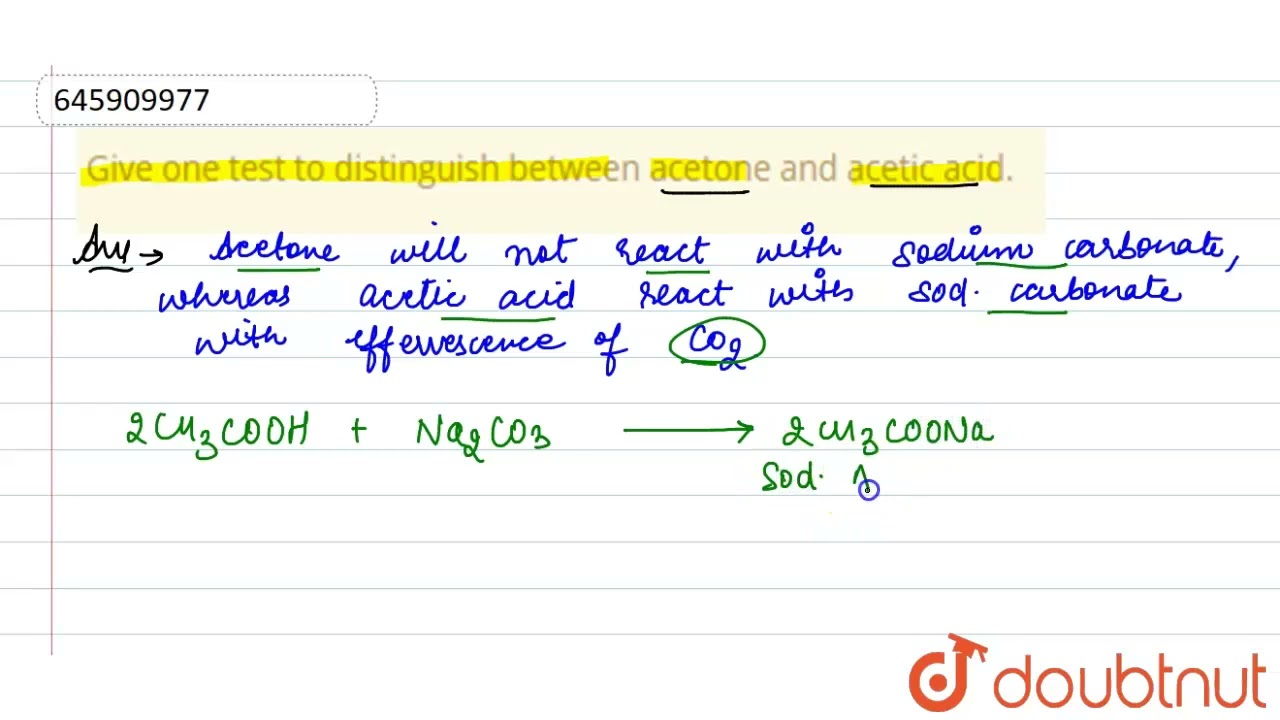 645909977
Give one test to distinguish between acetone and acetic acid.
Ans → Acetone will not react with sodium carbonate,
whereas acetic acid react with sod. carbonate
with effervescence of CO2
2CH3COOH + Na2CO3 → 2CH3COONa
Sod. A
doubtnut